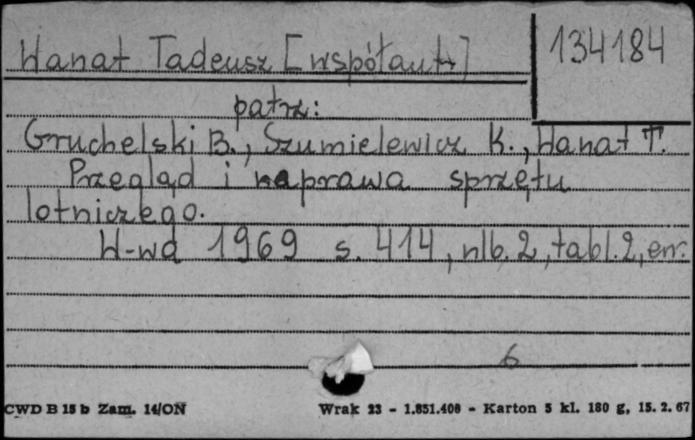 134184
Wanat Tadeusz [współaut.]
patrz:
Gruchelski B., Szumielewicz K., Wanat T.
Przegląd i naprawa sprzętu
lotniczego.
W-wa 1969 s. 414, nlb. 2, tabl. 2, err.
6
CWD B 15 b Zam. 14/ON Wrak 23 - 1.851.408 - Karton 5 kl. 180 g, 15. 2. 67